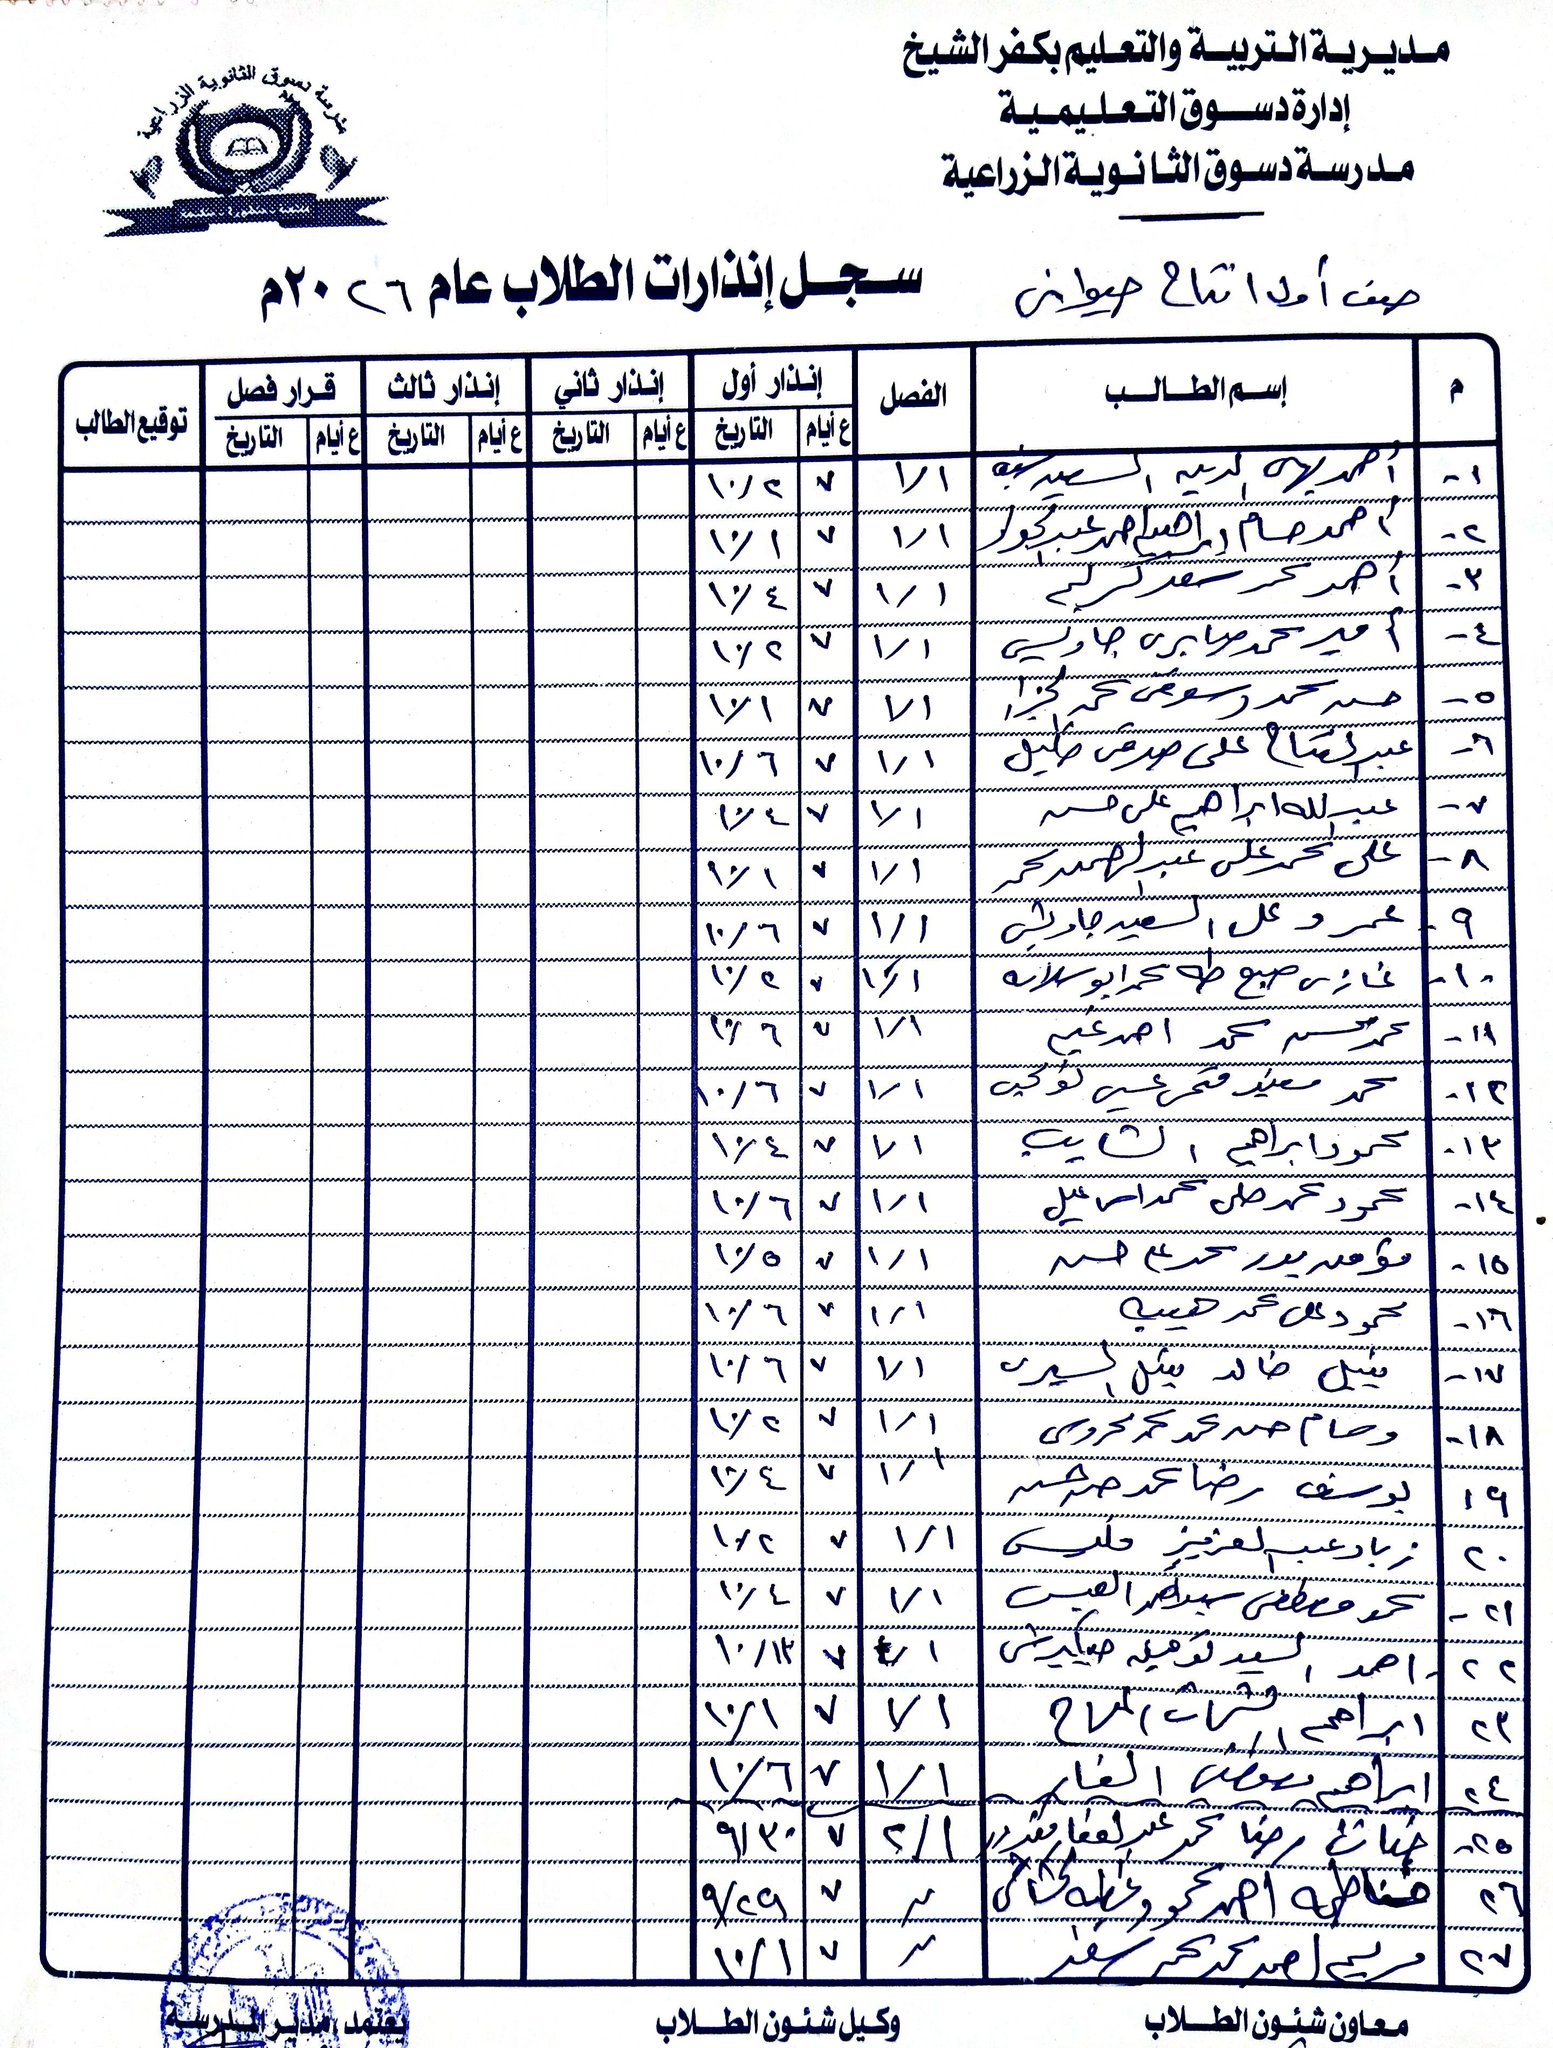 مديرية التربية والتعليم بكفر الشيخ
إدارة دسوق التعليمية
مدرسة دسوق الثانوية الزراعية
مدرسة دسوق الثانوية الزراعية
صف أول انتاج حيوانى
سجل إنذارات الطلاب عام ٢٠٢٦م
م إسم الطالب الفصل إنذار أول إنذار ثاني إنذار ثالث قرار فصل توقيع الطالب
ع أيام التاريخ ع أيام التاريخ ع أيام التاريخ ع أيام التاريخ
١- أحمد بهى الدين السعيد ١/١ ٧ ١٠/٢
٢- أحمد حسام ابراهيم احمد عبد الجواد ١/١ ٧ ١٠/١
٣- أحمد محمد سعد كريم ١/١ ٧ ١٠/٤
٤- أمير محمد صابرى جاويش ١/١ ٧ ١٠/٢
٥- حسن محمد دسوقى محمد ١/١ ٧ ١٠/١
٦- عبد الفتاح على صدقى خليل ١/١ ٧ ١٠/٦
٧- عبد الله ابراهيم على حسن ١/١ ٧ ١٠/٤
٨- على محمد على عبد الحميد محمد ١/١ ٧ ١٠/١
٩- عمرو على السعيد جاويش ١/١ ٧ ١٠/٦
١٠- غازى طه محمد ابو سلامه ١/١ ٧ ١٠/٢
١١- محمد محسن محمد احمد غنيم ١/١ ٧ ١٠/٦
١٢- محمد فتحى ١/١ ٧ ١٠/٦
١٣- محمود ابراهيم الشايب ١/١ ٧ ١٠/٤
١٤- محمود محمد محمد اسماعيل ١/١ ٧ ١٠/٦
١٥- مؤمن بدر محمد على حسن ١/١ ٧ ١٠/٥
١٦- محمود على محمد هيبه ١/١ ٧ ١٠/٦
١٧- نبيل خالد نبيل ١/١ ٧ ١٠/٦
١٨- وسام حسن محمد محمد محروس ١/١ ٧ ١٠/٢
١٩ يوسف رضا محمد حسن ١/١ ٧ ١٠/٤
٢٠ زياد عبد العزيز ١/١ ٧ ١٠/٢
٢١- محمد مصطفى سيد احمد ١/١ ٧ ١٠/٤
٢٢- احمد السعيد ١/١ ٧ ١٠/١٣
٢٣ ابراهيم ١/١ ٧ ١٠/١
٢٤ ابراهيم الفار ١/١ ٧ ١٠/٦
٢٥- رضا محمد عبد الغفار ٢/١ ٧ ٩/٣٠
٢٦ فاطمه احمد محمود ٧ ٩/٢٩
٢٧ مريم احمد محمد محمد سعد ٧ ١٠/١
معاون شئون الطلاب
وكيل شئون الطلاب
يعتمد، مدير المدرسة